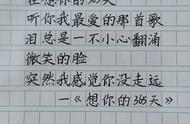 在想你的365天
听你我最爱的那首歌
泪总是一不小心翻涌
微笑的脸
突然我感觉你没走远
—《想你的365天》